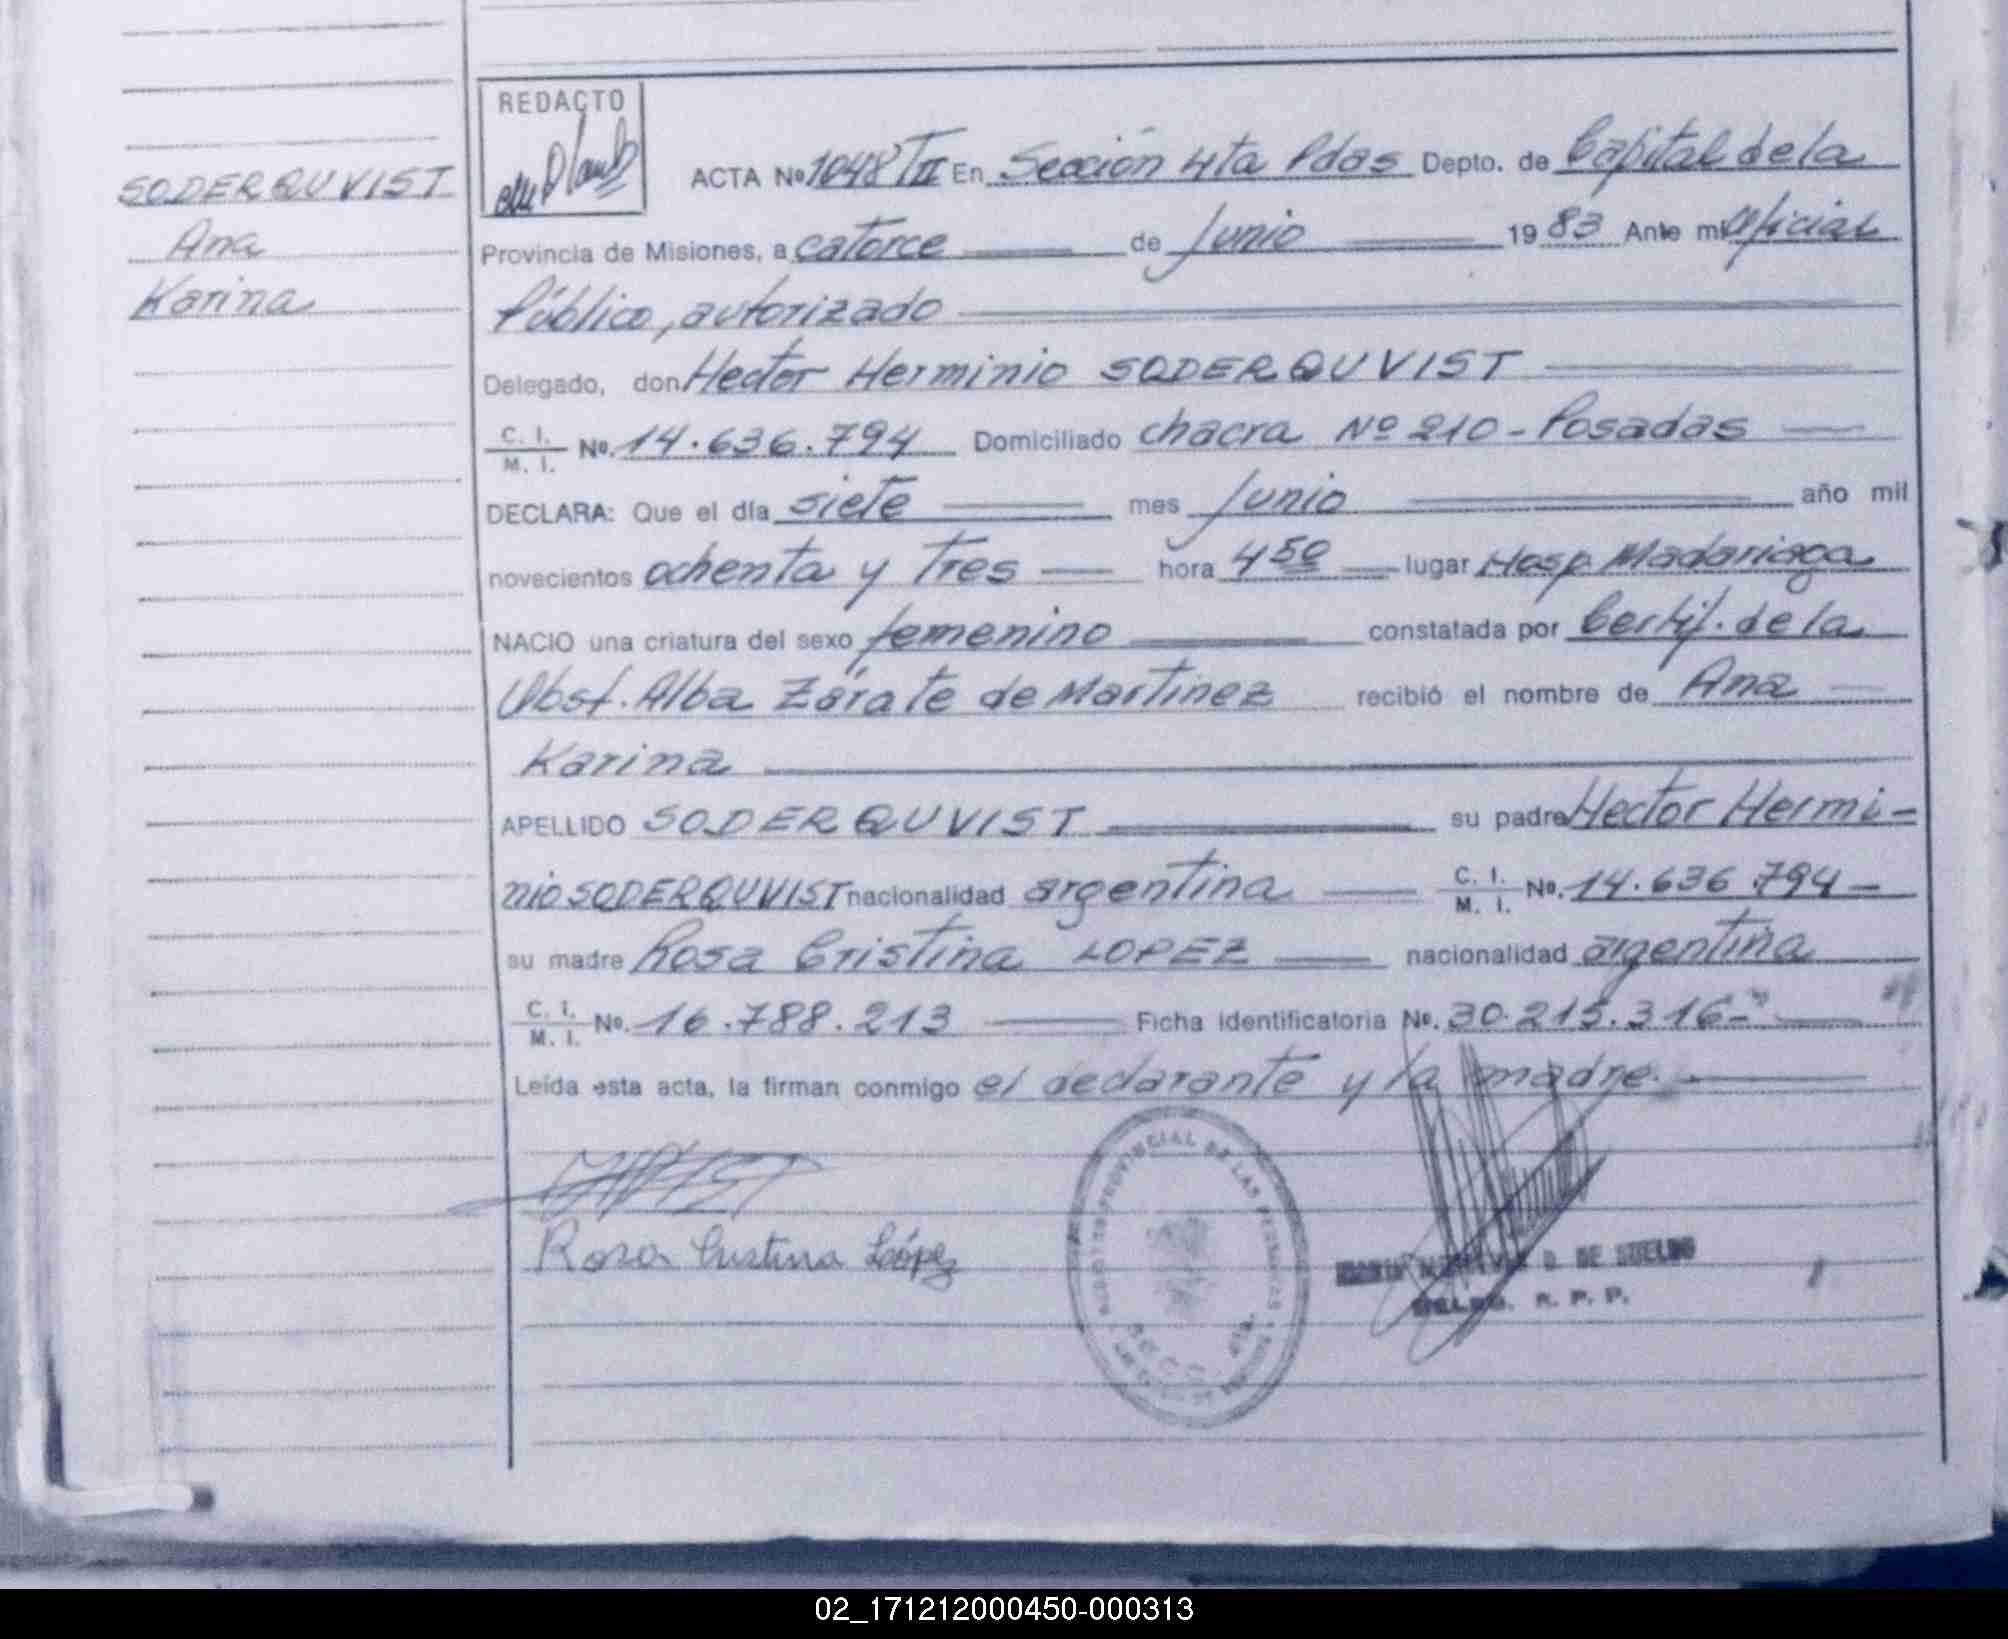 SODERQUVIST
Ana
Karina
REDACTO
ACTA Nº 1048 TII En Sección 4ta Pdas Depto. de Capital de la
Provincia de Misiones, a catorce de Junio 1983 Ante mi Oficial
Público, autorizado
Delegado, don Hector Herminio SODERQUVIST
C. I. / M. I. Nº. 14.636.794 Domiciliado chacra Nº 210 - Posadas
DECLARA: Que el día siete mes Junio año mil
novecientos ochenta y tres hora 4 50 lugar Hosp. Madariaga
NACIO una criatura del sexo femenino constatada por Certif. de la
Obst. Alba Zárate de Martinez recibió el nombre de Ana
Karina
APELLIDO SODERQUVIST su padre Hector Hermi-
nio SODERQUVIST nacionalidad argentina C. I. / M. I. Nº. 14.636.794-
su madre Rosa Cristina LOPEZ nacionalidad argentina
C. I. / M. I. Nº. 16.788.213 Ficha identificatoria Nº. 30.215.316-
Leída esta acta, la firman conmigo el declarante y la madre.
Rosa Cristina López
PROVINCIAL DE LAS PERSONAS
SECC. 4ta.
D. DE SUELDO
DELEG. R. P. P.
02_171212000450-000313